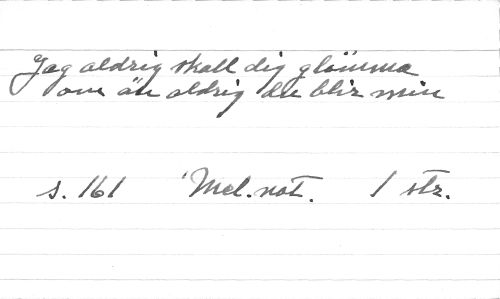 Jag aldrig skall dig glömma
om än aldrig du blir min
s. 161 Mel.not. 1 str.